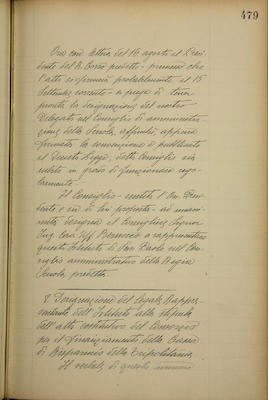 479
Ora con lettera del 14 agosto il Presi-
dente del R. Corso predetto - premesso che
l'atto si firmerà probabilmente il 15
Settembre corrente - ci prega di tener
pronta la designazione del nostro
Delegato nel Consiglio di amministra-
zione della Scuola, affinché, appena
firmata la convenzione e pubblicato
il Decreto Legge, detto Consiglio sia
subito in grado di funzionare rego-
larmente.
Il Consiglio - sentito l'On. Presi-
dente, e su di lui proposta - ad unani-
mità designa il Consigliere Signor
Ing. Cav. Uff. a rappresentare
questo Istituto di San Paolo nel Con-
siglio amministrativo della Regia
Scuola predetta.
8. Designazione del legale Rappre-
sentante dell'Istituto alla stipula
dell'atto costitutivo del Consorzio
per il finanziamento della Cassa
di Risparmio della Tripolitania.
Il verbale di questo numero